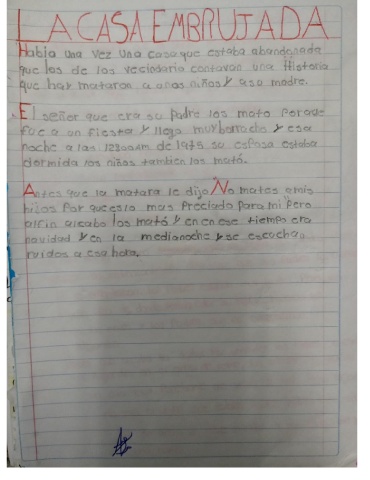 LA CASA EMBRUJADA
Había una vez una casa que estaba abandonada
que los de los vecindaria contavan una Historia
que hay mataron a unas niños y a su madre.
El señor que era su Padre los mato Porque
fue a un fiesta y llego muy borracho y esa
noche a las 12:00am de 1975 su esposa estaba
dormida los niños tambien los mató.
Antes que la matara le dijo No mates a mis
hijos Por que es la mas Preciado Para mi Pero
al fin al cabo los mató y en en ese tiempo era
navidad y en la media noche y se escucha
ruidos a esa hora.